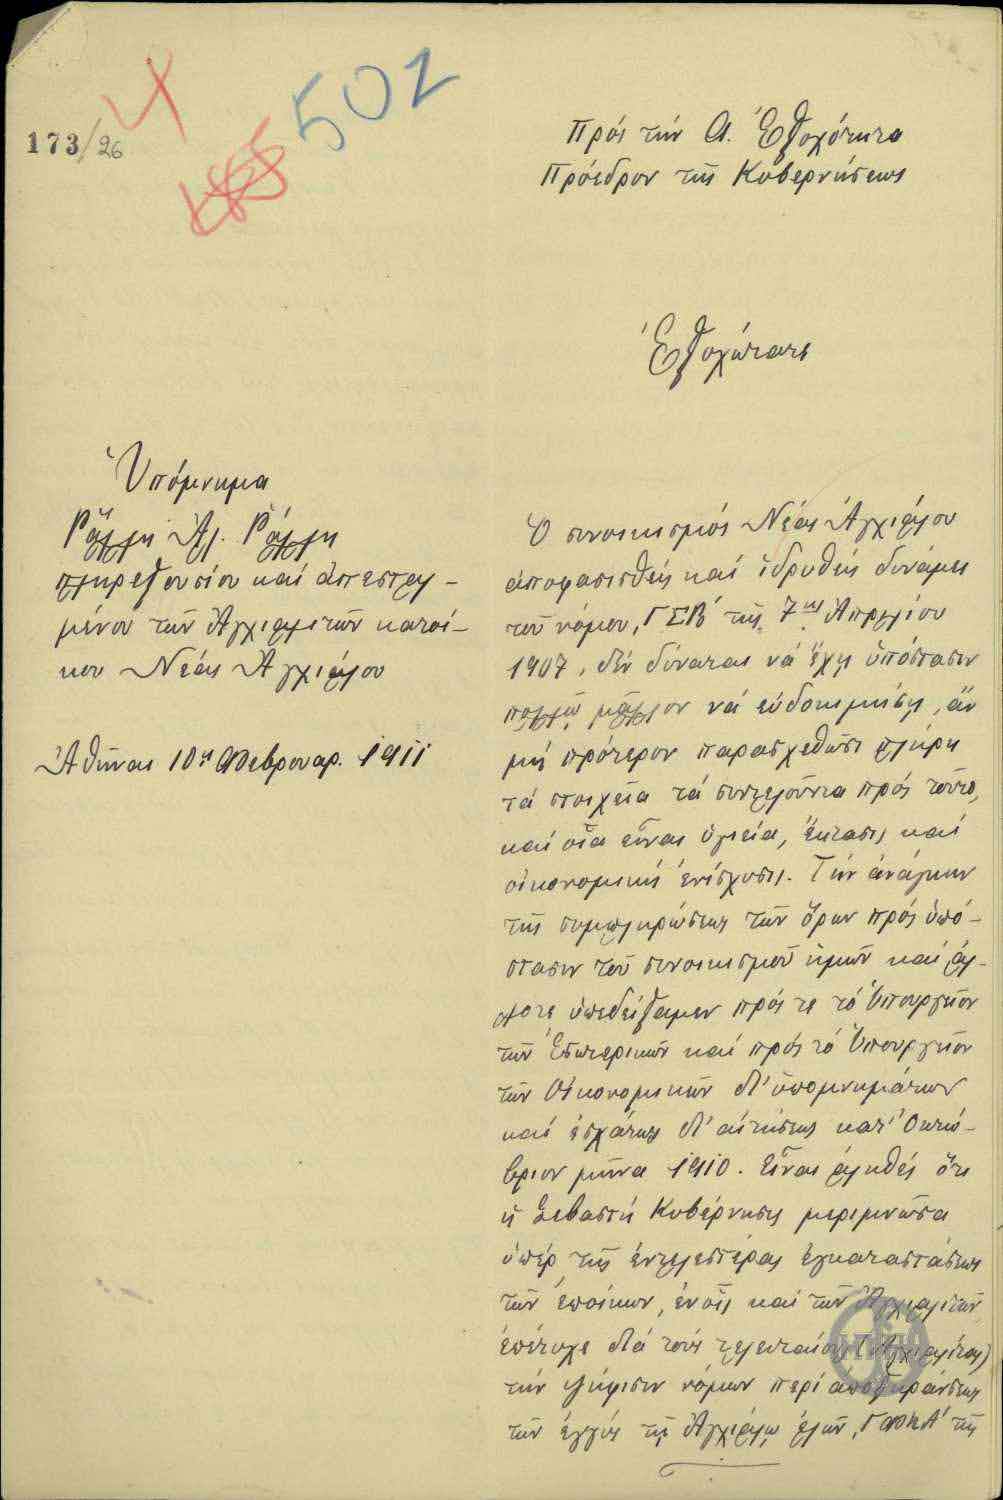 173/26
4
502
Πρός τήν Α. Ἐξοχότητα
Πρόεδρον τῆς Κυβερνήσεως
Ἐξοχώτατε
Ὑπόμνημα
Ράλλη Ἀλ. Ράλλη
πληρεξουσίου καί ἀπεσταλ-
μένου τῶν Ἀγχιαλιτῶν κατοί-
κου Νέας Ἀγχιάλου
Ἀθῆναι 10ῃ Φεβρουαρ. 1911
Ὁ συνοικισμός Νέας Ἀγχιάλου
ἀποφασισθείς καί ἱδρυθείς δυνάμει
τοῦ νόμου, ΓΣΒ΄ τῆς 7ης Ἀπριλίου
1907, δέν δύναται νά ἔχῃ ὑπόστασιν
πολλῷ μᾶλλον νά εὐδοκιμήσῃ, ἄν
μή πρότερον παρασχεθῶσι πλήρη
τά στοιχεῖα τά συντελοῦντα πρός τοῦτο,
καί οἷα εἶναι ὑγιεία, ἔκτασις καί
οἰκονομική ἐνίσχυσις. Τήν ἀνάγκην
τῆς συμπληρώσεως τῶν ὅρων πρός ὑπό-
στασιν τοῦ συνοικισμοῦ ἡμῶν καί ἄλ-
λοτε ὑπεδείξαμεν πρός τε τό Ὑπουργεῖον
τῶν Ἐσωτερικῶν καί πρός τό Ὑπουργεῖον
τῶν Οἰκονομικῶν δι' ὑπομνημάτων
καί ἐσχάτως δι' αἰτήσεως κατ' Ὀκτώ-
βριον μῆνα 1910. Εἶναι ἀληθές ὅτι
ἡ Σεβαστή Κυβέρνησις μεριμνῶσα
ὑπέρ τῆς ἐντελεστέρας ἐγκαταστάσεως
τῶν ἐποίκων, ἐν οἷς καί τῶν Ἀγχιαλιτῶν,
ἐπέτυχε διά τούς τελευταίους (Ἀγχιαλίτας)
τήν ψήφισιν νόμων περί ἀποξηράνσεως
τῶν ἐγγύς τῇ Ἀγχιάλῳ ἑλῶν, ΓΦΠΑ΄ τῆς